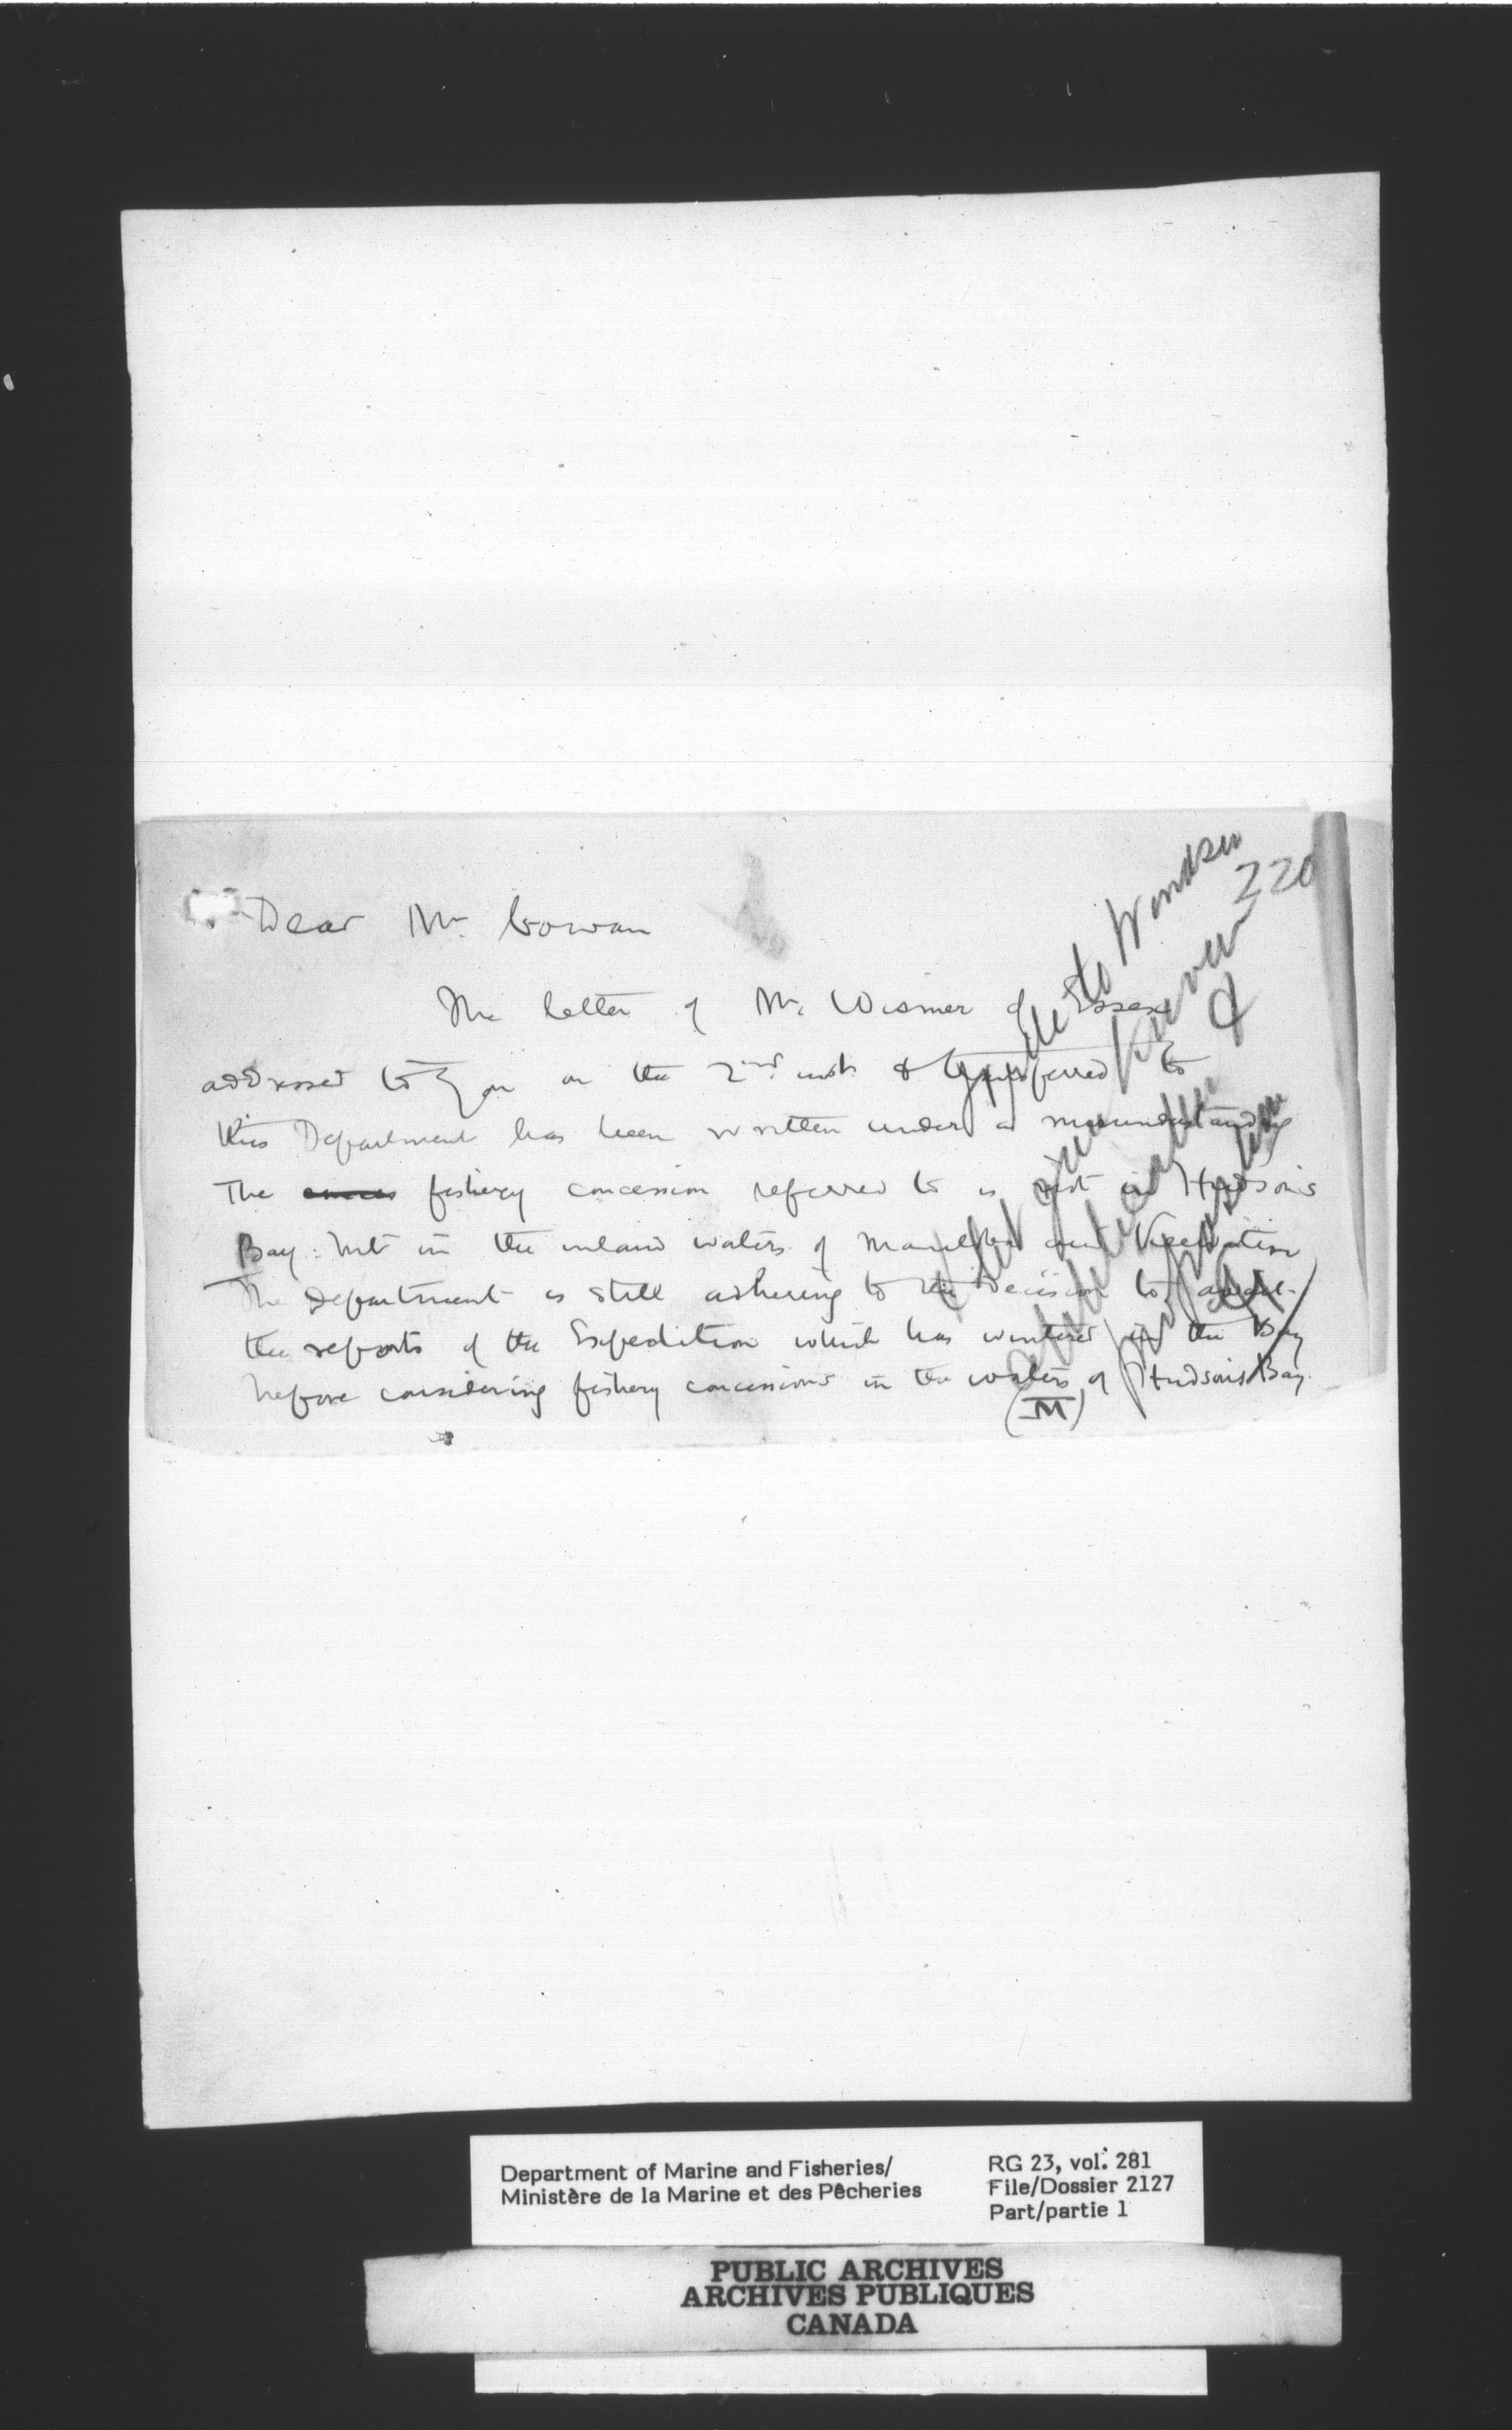 220
Dear Mr. Cowan
The letter of Mr. Wismer of Essex
addressed to you on the 2nd inst. & transferred to
this Department has been written under a misunderstanding
The fishery concession referred to is not in Hudson's
Bay: but in the inland waters of Manitoba and Keewatin
The Department is still adhering to the decision to await
the reports of the Expedition which has wintered in the Bay
before considering fishery concessions in the waters of Hudson's Bay.
to Windsor
Department of Marine and Fisheries/
Ministère de la Marine et des Pêcheries
RG 23, vol. 281
File/Dossier 2127
Part/partie 1
PUBLIC ARCHIVES
ARCHIVES PUBLIQUES
CANADA